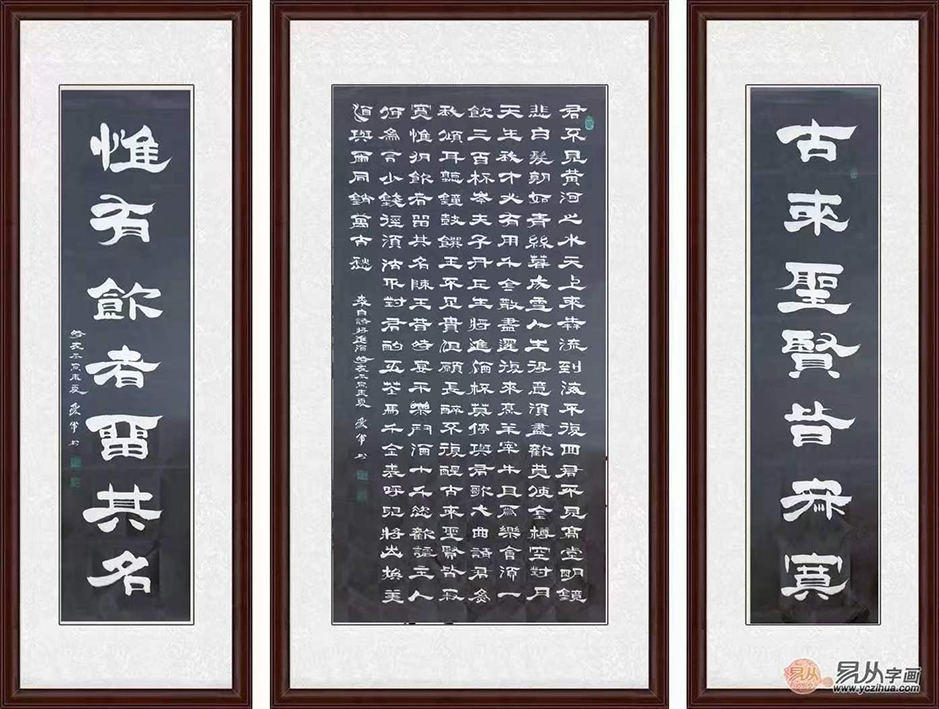 古來聖賢皆寂寞
君不見黃河之水天上來犇流到海不復回君不見高堂明鏡
悲白髮朝如青絲暮成雪人生得意須盡歡莫使金樽空對月
天生我才必有用千金散盡還復來烹羊宰牛且爲樂會須一
飲三百杯岑夫子丹丘生將進酒杯莫停與君歌一曲請君爲
我傾耳聽鐘鼓饌玉不足貴但願長醉不復醒古來聖賢皆寂
寞惟有飲者留其名陳王昔時宴平樂斗酒十千恣歡謔主人
何爲言少錢徑須沽取對君酌五花馬千金裘呼兒將出換美
酒與爾同銷萬古愁
李白詩將進酒
惟有飲者留其名
易从字画
www.yczihua.com